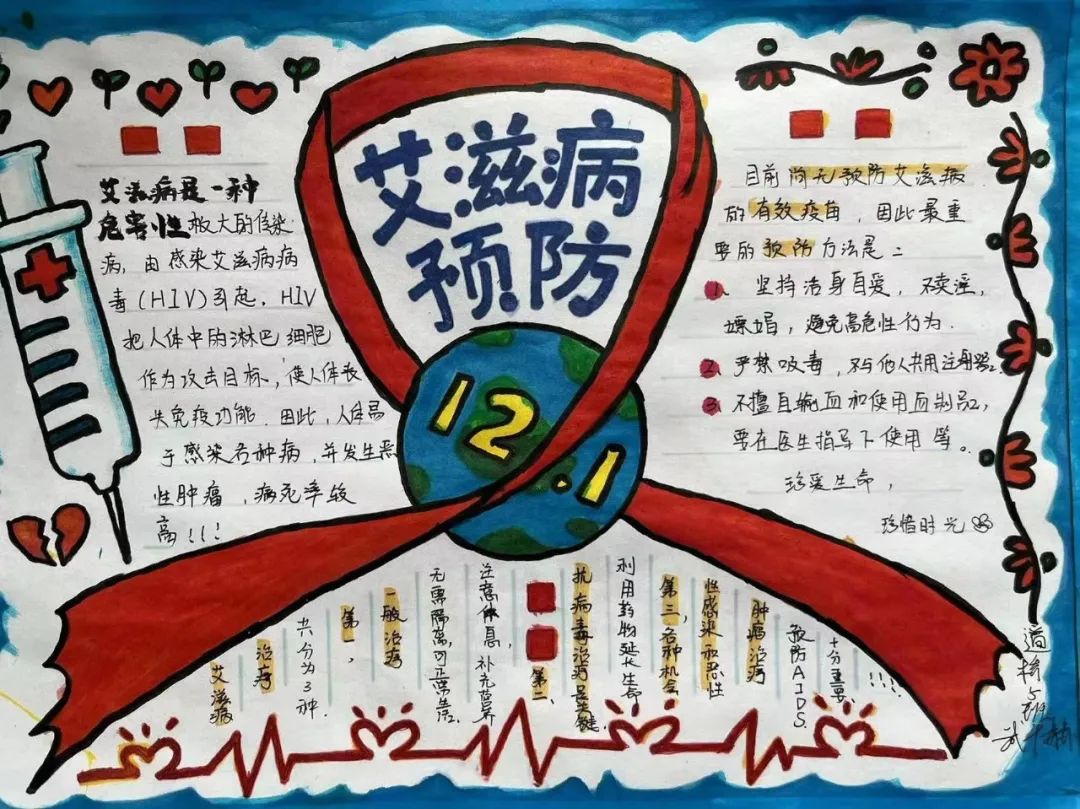 艾滋病
预防
12.1
艾滋病是一种
危害性极大的传染
病，由感染艾滋病病
毒(HIV)引起，HIV
把人体中的淋巴细胞
作为攻击目标，使人体丧
失免疫功能．因此，人体易
于感染各种病，并发生恶
性肿瘤，病死率较
高!!!
目前尚无预防艾滋病
的有效疫苗，因此最重
要的预防方法是：
1、坚持洁身自爱，不卖淫，
嫖娼，避免高危性行为．
2、严禁吸毒，不与他人共用注射器。
3、不擅自输血和使用血制品，
要在医生指导下使用等。
珍爱生命，
珍惜时光
艾滋病
治疗
共分为3种．
第一，
一般治疗
无需隔离，可正常生活．
注意休息，补充营养
第二、
抗病毒治疗是关键
利用药物延长生命
第三，各种机会
性感染和恶性
肿瘤治疗
预防AIDS
十分重要
!!!!
班